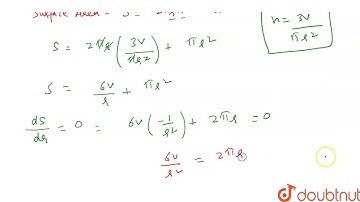 Surface Area = S =
h = 3V / πr²
S = 2πr (3V / πr²) + πr²
S = 6V / r + πr²
dS/dr = 0 = 6V (-1/r²) + 2πr = 0
6V / r² = 2πr
doubtnut